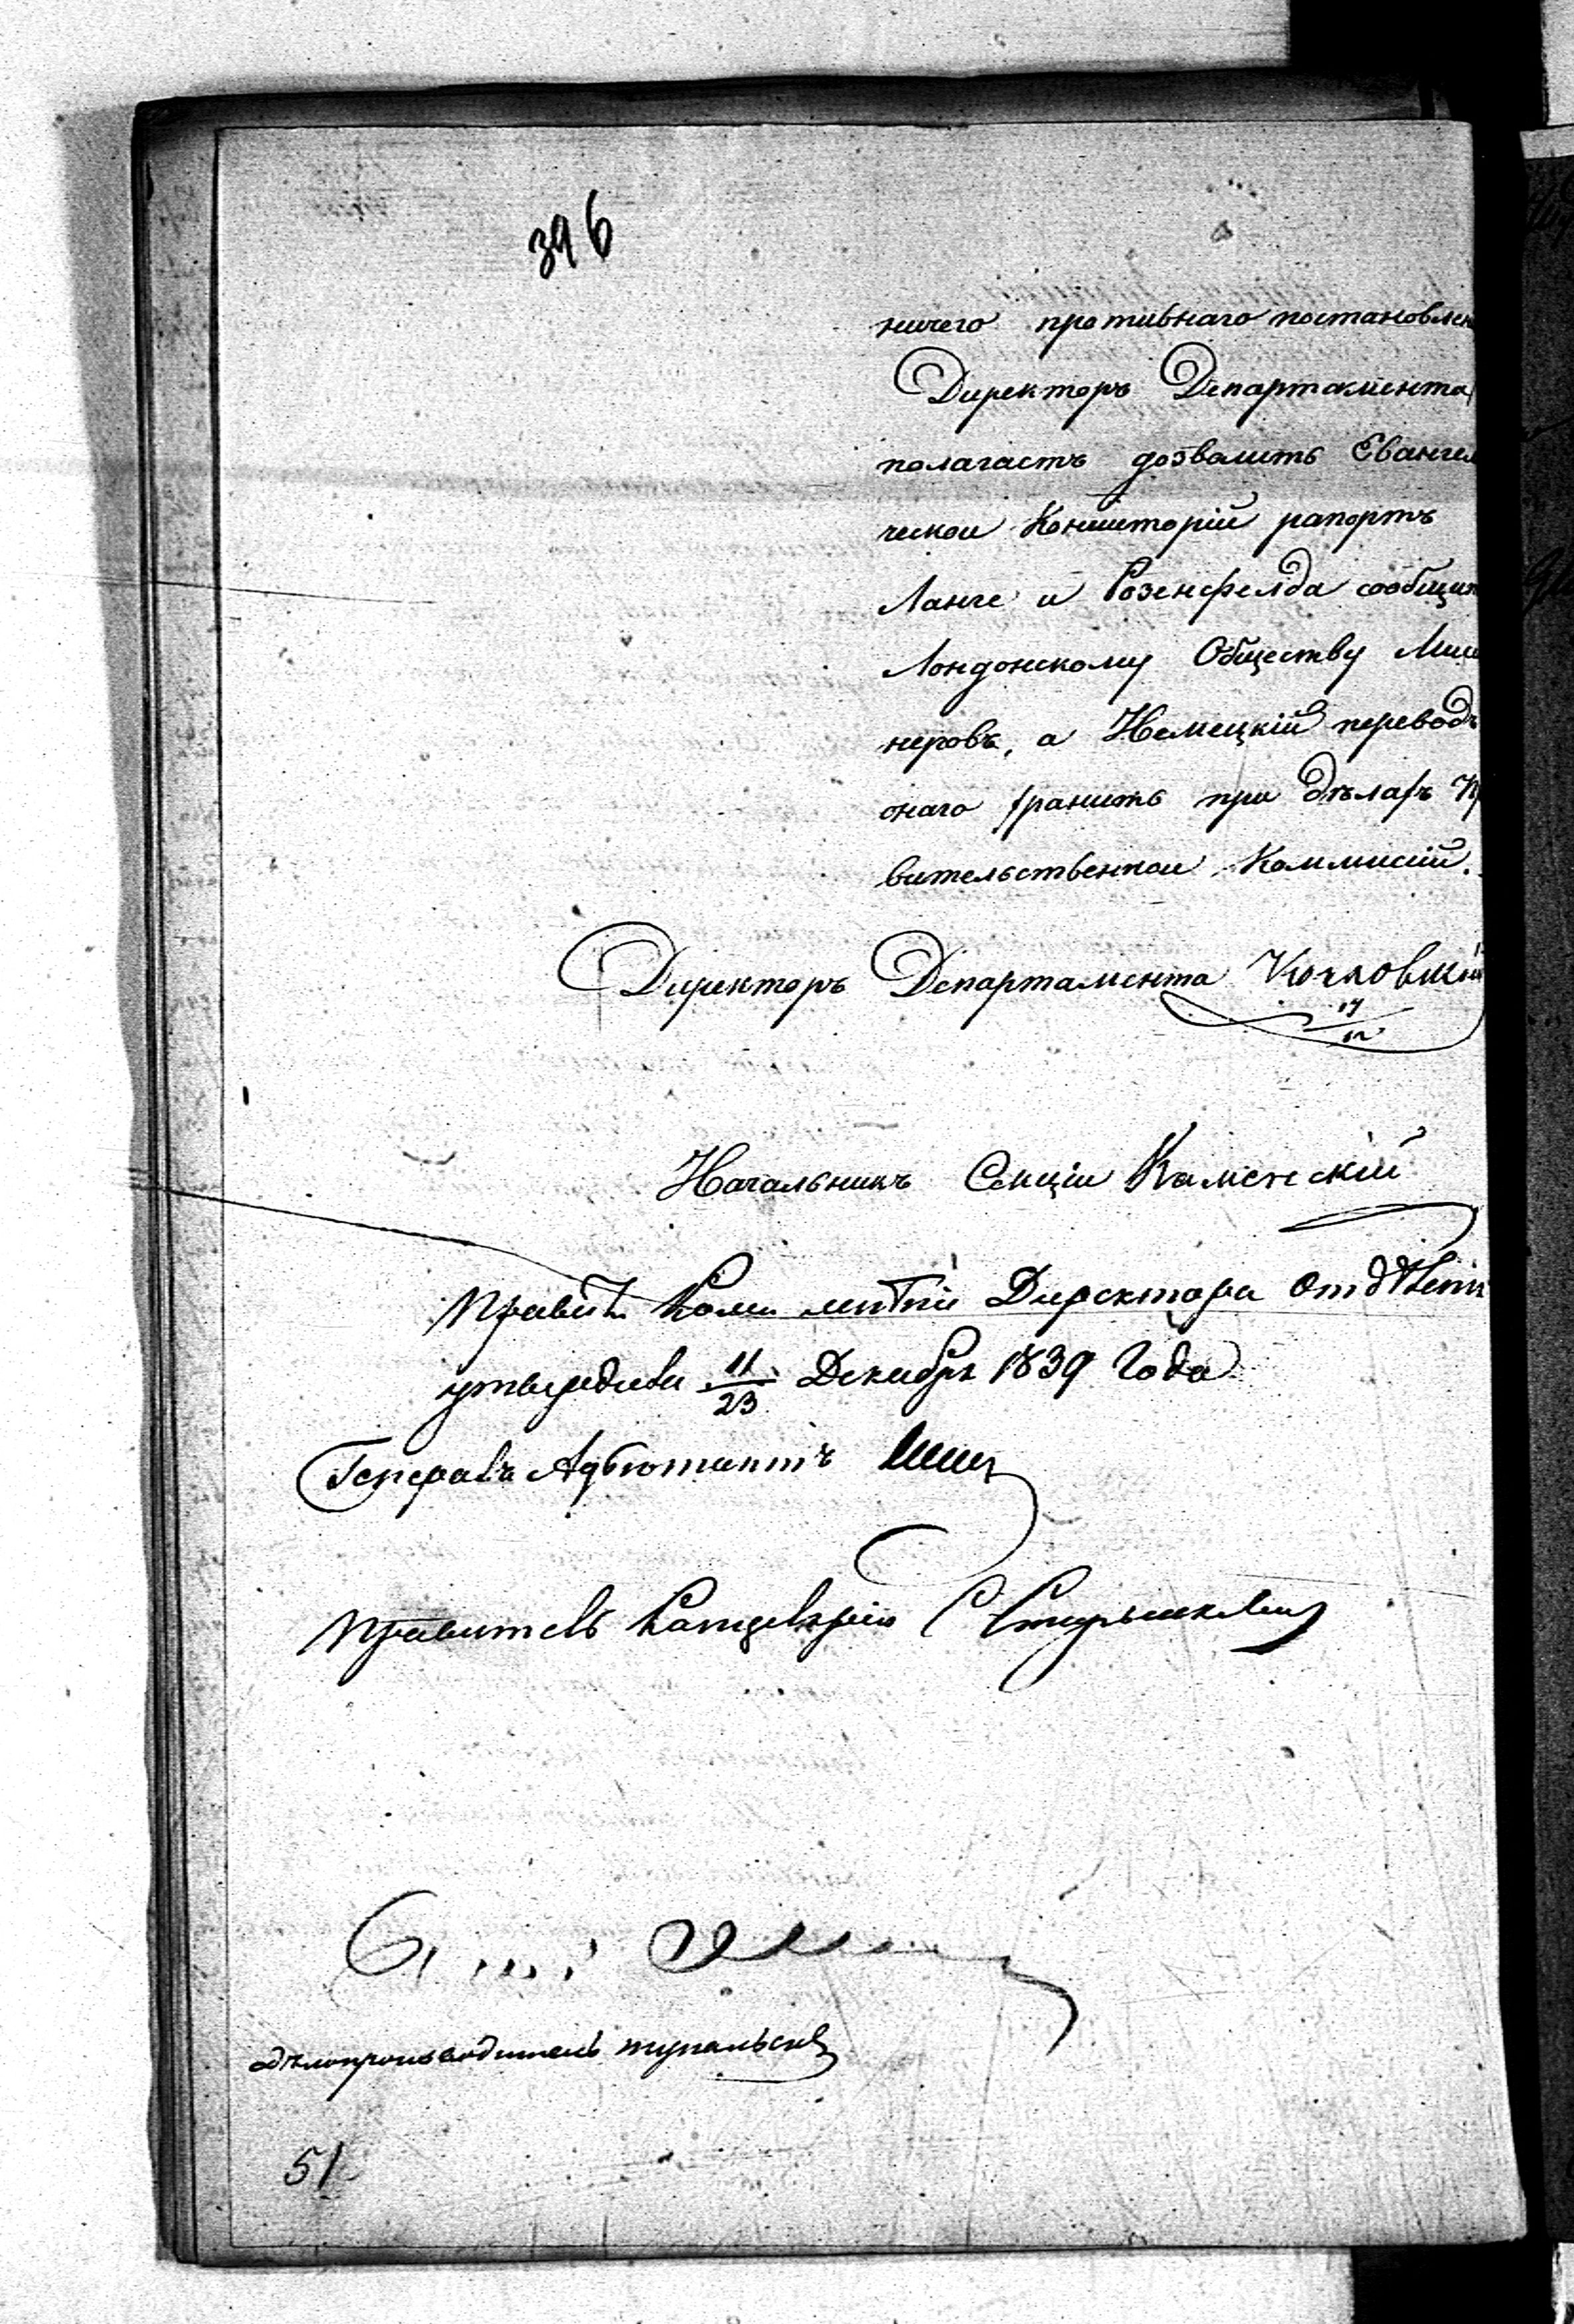 396
ничего противнаго постановлен
Директоръ Департамента
полагастъ дозволить Евангел
ческои Консисторіи рапортъ
Ланге и Розенфелда сообщит
Лондонскому Обществу Мисс
неровъ, а Немецкій переводъ
онаго хранить при дѣлахъ Пр
вительственнои Коммисіи.
Директоръ Департамента
17
12
Начальникъ Секціи Каменскій
Директора
утвердила 11/23 Декабря 1839 Года
Генералъ Адъютантъ
Правитель Канцеляріи
дѣлопроизводитель
51